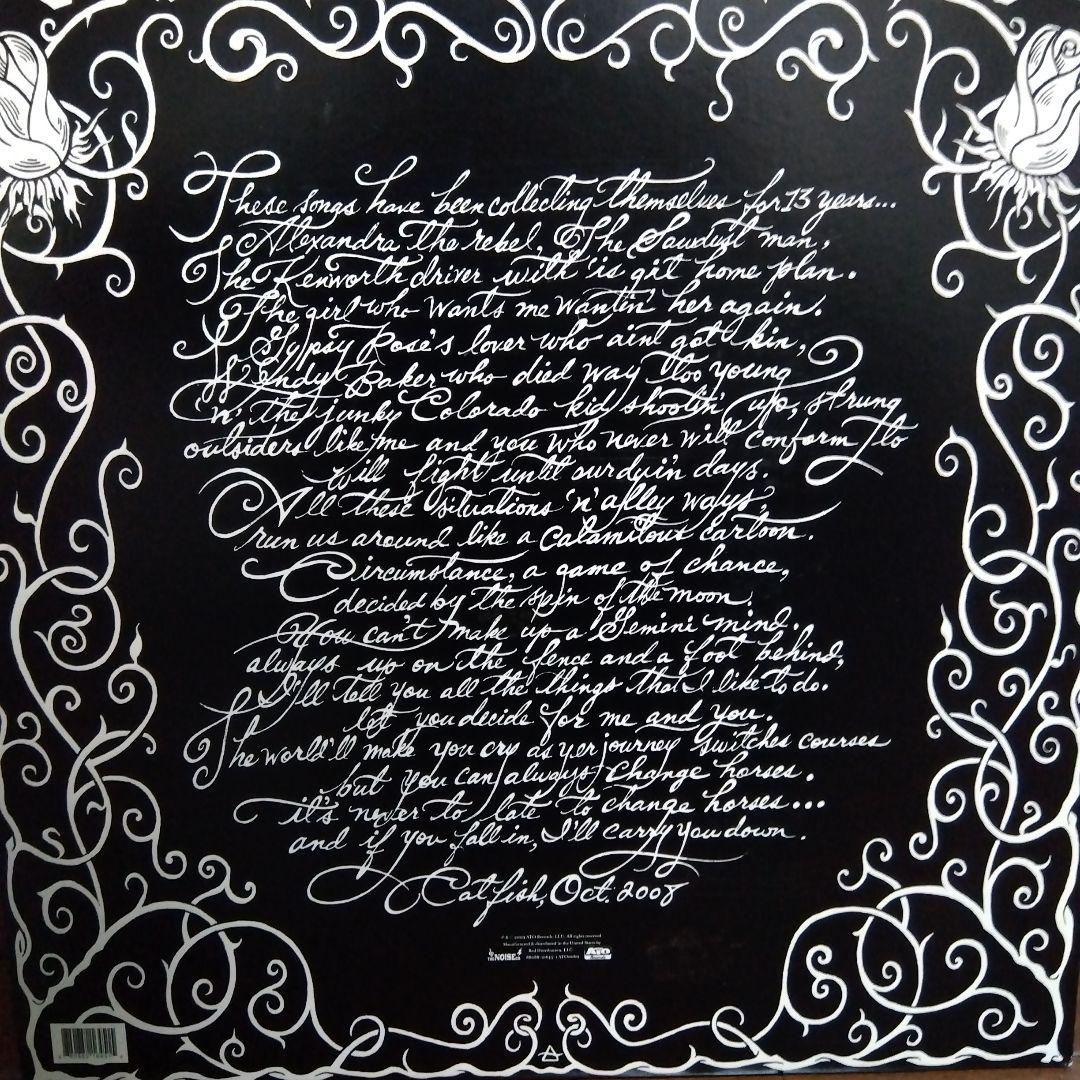 These songs have been collecting themselves for 13 years...
Alexandra the rebel, The Sawdust man,
The Kenworth driver with 'is git home plan.
The girl who wants me wantin' her again.
Gypsy Rose's lover who aint got kin,
Wendy Baker who died way too young
'n' the junky Colorado kid shootin' up, strung
outsiders like me and you who never will conform to
will fight until our dyin' days.
All these situations 'n' alley ways,
run us around like a calamitous cartoon.
Circumstance, a game of chance,
decided by the spin of the moon.
You can't make up a Gemini mind.
always up on the fence and a foot behind,
I'll tell you all the things that I like to do.
let you decide for me and you.
The world'll make you cry as yer journey switches courses
but you can always change horses.
it's never to late to change horses...
and if you fall in, I'll carry you down.
Catfish, Oct. 2008
ATO Records, LLC. All rights reserved
Manufactured & distributed in the United States by
Red Distribution, LLC
THE NOISE
ATO
Records